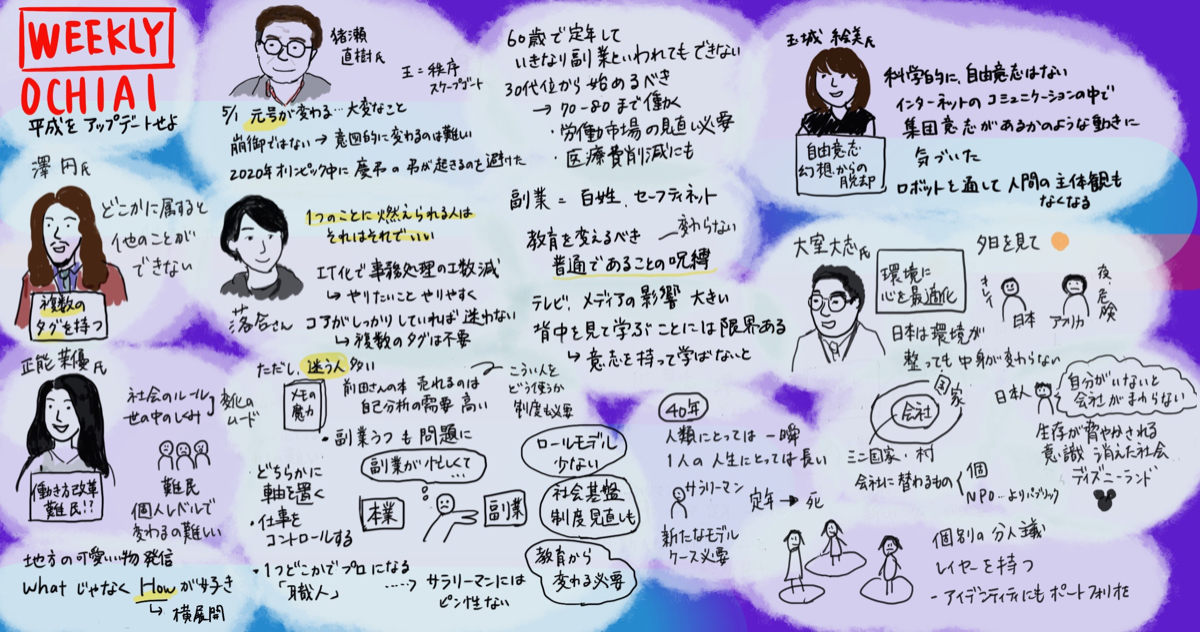 WEEKLY
OCHIAI
平成をアップデートせよ
猪瀬
直樹氏
王=秩序
スケープゴート
5/1 元号が変わる…大変なこと
崩御ではない→意図的に変わるのは難しい
2020年オリンピック中に
が起きるのを避けた
60歳で定年して
いきなり副業といわれてもできない
30代位から始めるべき
→70-80まで働く
・労働市場の見直し必要
・医療費削減にも
玉城 絵美氏
科学的に、自由意志はない
インターネットのコミュニケーションの中で
集団意志があるかのような動きに
気づいた
ロボットを通して人間の主体観も
なくなる
自由意志
幻想からの
脱却
澤 円氏
どこかに属すると
他のことが
できない
複数の
タグを持つ
落合さん
1つのことに燃えられる人は
それはそれでいい
IT化で事務処理の工数減
↳やりたいことやりやすく
コアがしっかりしていれば迷わない
↳複数のタグは不要
副業=百姓、セーフティネット
教育を変えるべき
変わらない
普通であることの呪縛
テレビ、メディアの影響 大きい
背中を見て学ぶことには限界ある
↳意志を持って学ばないと
大室大志氏
環境に
心を最適化
夕日を見て
キレイ
日本
アメリカ
夜、危険
日本は環境が
整っても中身が変わらない
正能茉優氏
社会のルール
世の中のしくみ
変化の
ムード
難民
個人レベルで
変わるの難しい
働き方改革
難民!?
地方の可愛い物発信
WhatじゃなくHowが好き
↳横展開
ただし、迷う人多い
メモの
魔力
前田さんの本 売れるのは
自己分析の需要 高い
こういう人を
どう使うか
制度も必要
・副業うつも問題に
・どちらかに
軸を置く
・仕事を
コントロールする
副業が忙しくて…
本業
副業
・1つどこかでプロになる
「職人」
……→サラリーマンには
ピン性ない
ロールモデル
少ない
社会基盤
制度見直しも
教育から
変わる必要
40年
人類にとっては一瞬
1人の人生にとっては長い
サラリーマン
定年→死
新たなモデル
ケース必要
国家
会社
ミニ国家・村
会社に替わるもの
個
NPO…よりパブリック
日本人
自分がいないと
会社がまわらない
生存が脅やかされる
意識う消えた社会
ディズニーランド
個別の分人議
レイヤーを持つ
-アイデンティティにもポートフォリオを